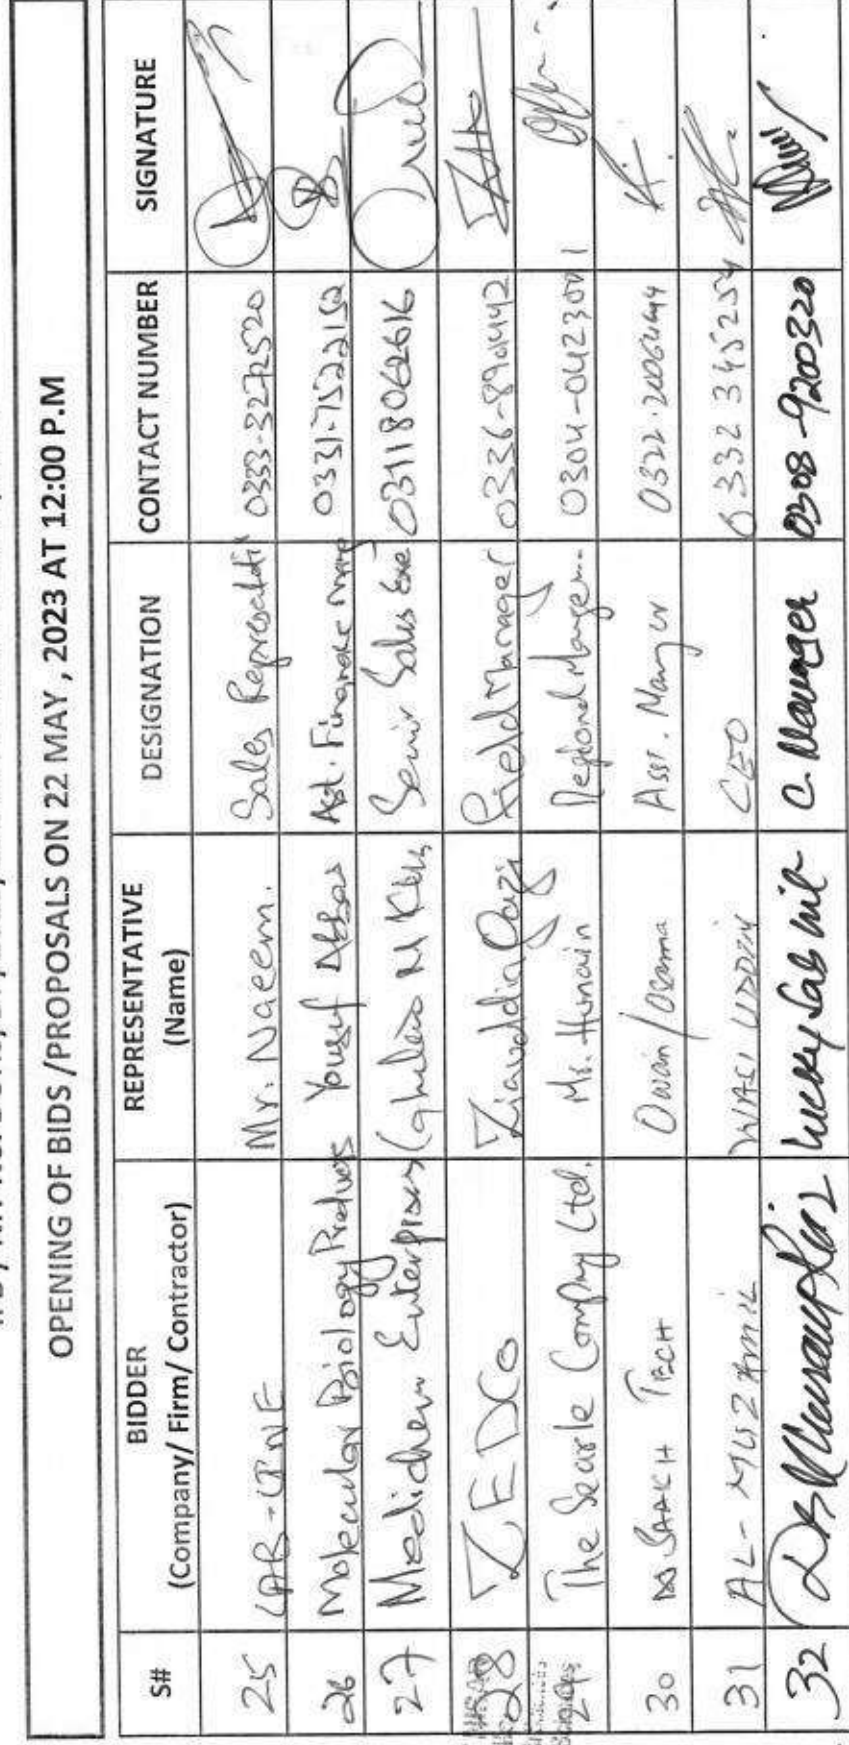 OPENING OF BIDS /PROPOSALS ON 22 MAY, 2023 AT 12:00 P.M
S# BIDDER (Company/ Firm/ Contractor) REPRESENTATIVE (Name) DESIGNATION CONTACT NUMBER SIGNATURE
25 LAB-LINE Mr. Naeem. Sales 0333-3272520
26 Molecular Biology Yousuf Abbas Ast. Finance 0331-7522152
27 Medichem Enterprises Senior Sales Exe 03118062616
28 ZEDCO Ziauddin Qazi Field Manager 0336-8901442
29 The Searle Company Ltd. Ms. Hunain Regional Manager 0304-0423001
30 SAAKH TECH Owain/Osama Asst. Manager
31 AL-MUZAMIL WASI UDDIN CEO 0332 345254
32 C. Manager 0308-9200320